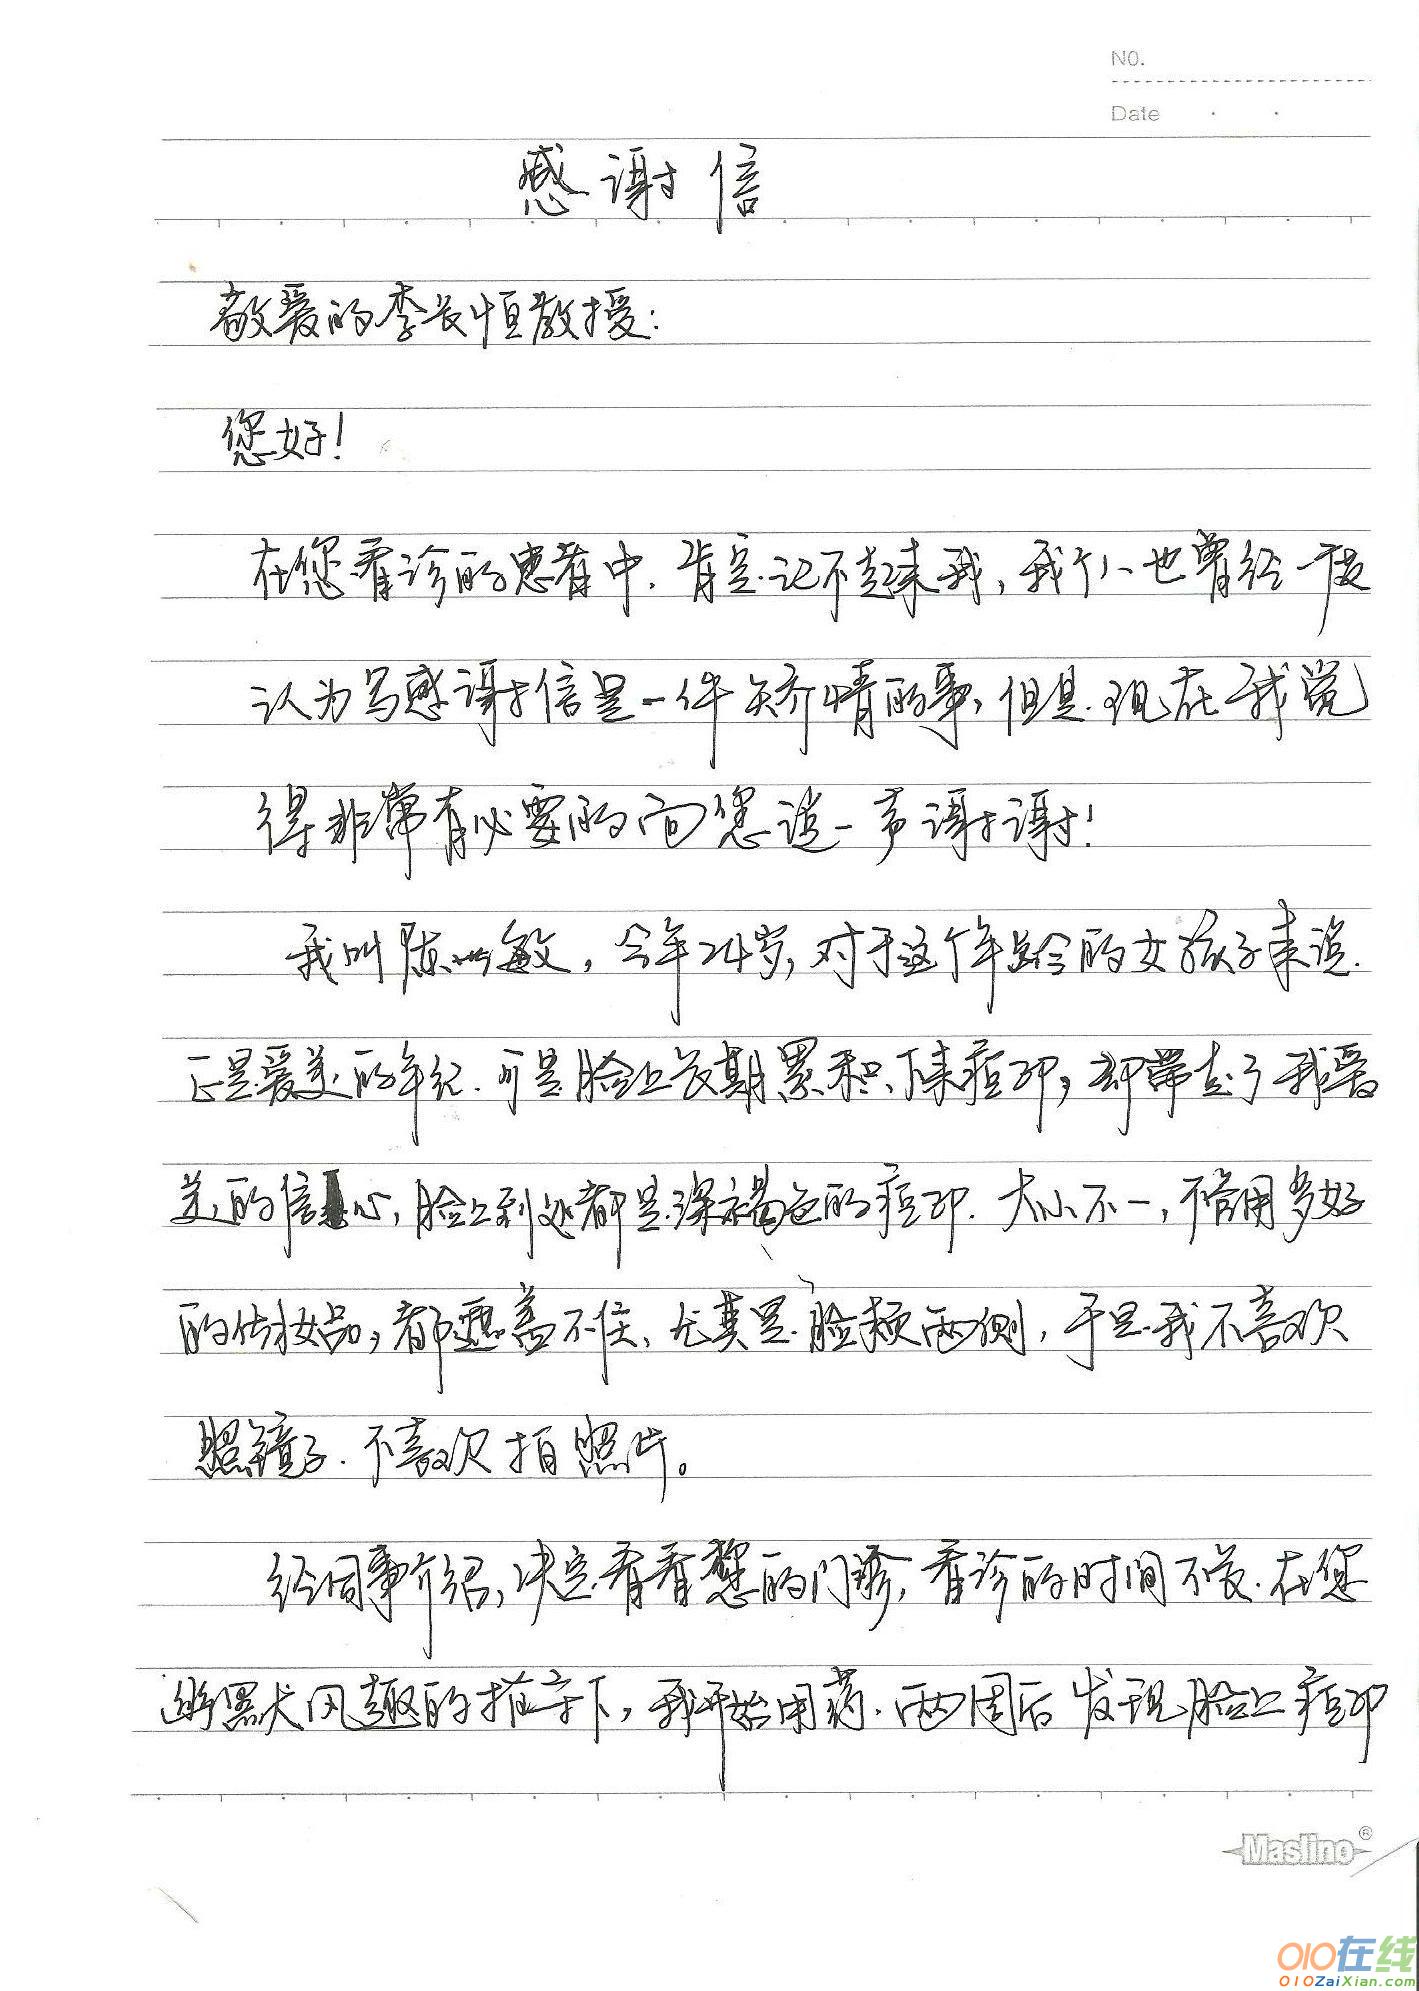 NO.
Date
感谢信
敬爱的李长恒教授：
您好！
在您看诊的患者中.肯定记不起来我，我个人也曾经一度
认为写感谢信是一件矫情的事，但是.现在我觉
得非常有必要的向您说一声谢谢！
我叫陈敏，今年24岁，对于这个年龄的女孩子来说.
正是爱美的年纪.可是脸上长期累积下来痘印，却带走了我爱
美的信心，脸上到处都是深褐色的痘印.大小不一，不管用多好
的化妆品，都遮盖不住、尤其是脸颊两侧，于是我不喜欢
照镜子.不喜欢拍照片。
经同事介绍，决定看看您的门诊，看诊的时间不长.在您
幽默风趣的推荐下，我开始用药.两周后发现脸上痘印
Maslino®
010在线
010ZaiXian.com